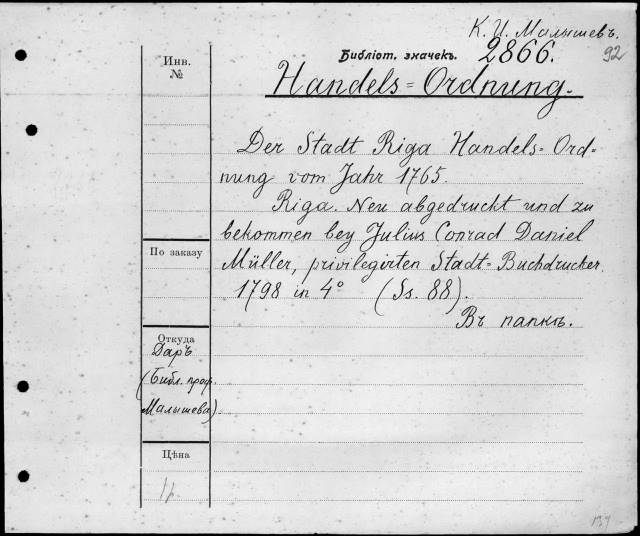 К. И. Малышевъ.
Библіот. значекъ. 2866. 92
Handels=Ordnung.
Инв.
№
Der Stadt Riga Handels=Ord=
nung vom Jahr 1765.
Riga. Neu abgedruckt und zu
bekommen bey Julius Conrad Daniel
Müller, privilegirten Stadt=Buchdrucker.
1798 in 4° (Ss. 88).
Въ папкѣ.
По заказу
Откуда
Даръ
(Библ. проф.
Малышева).
Цѣна